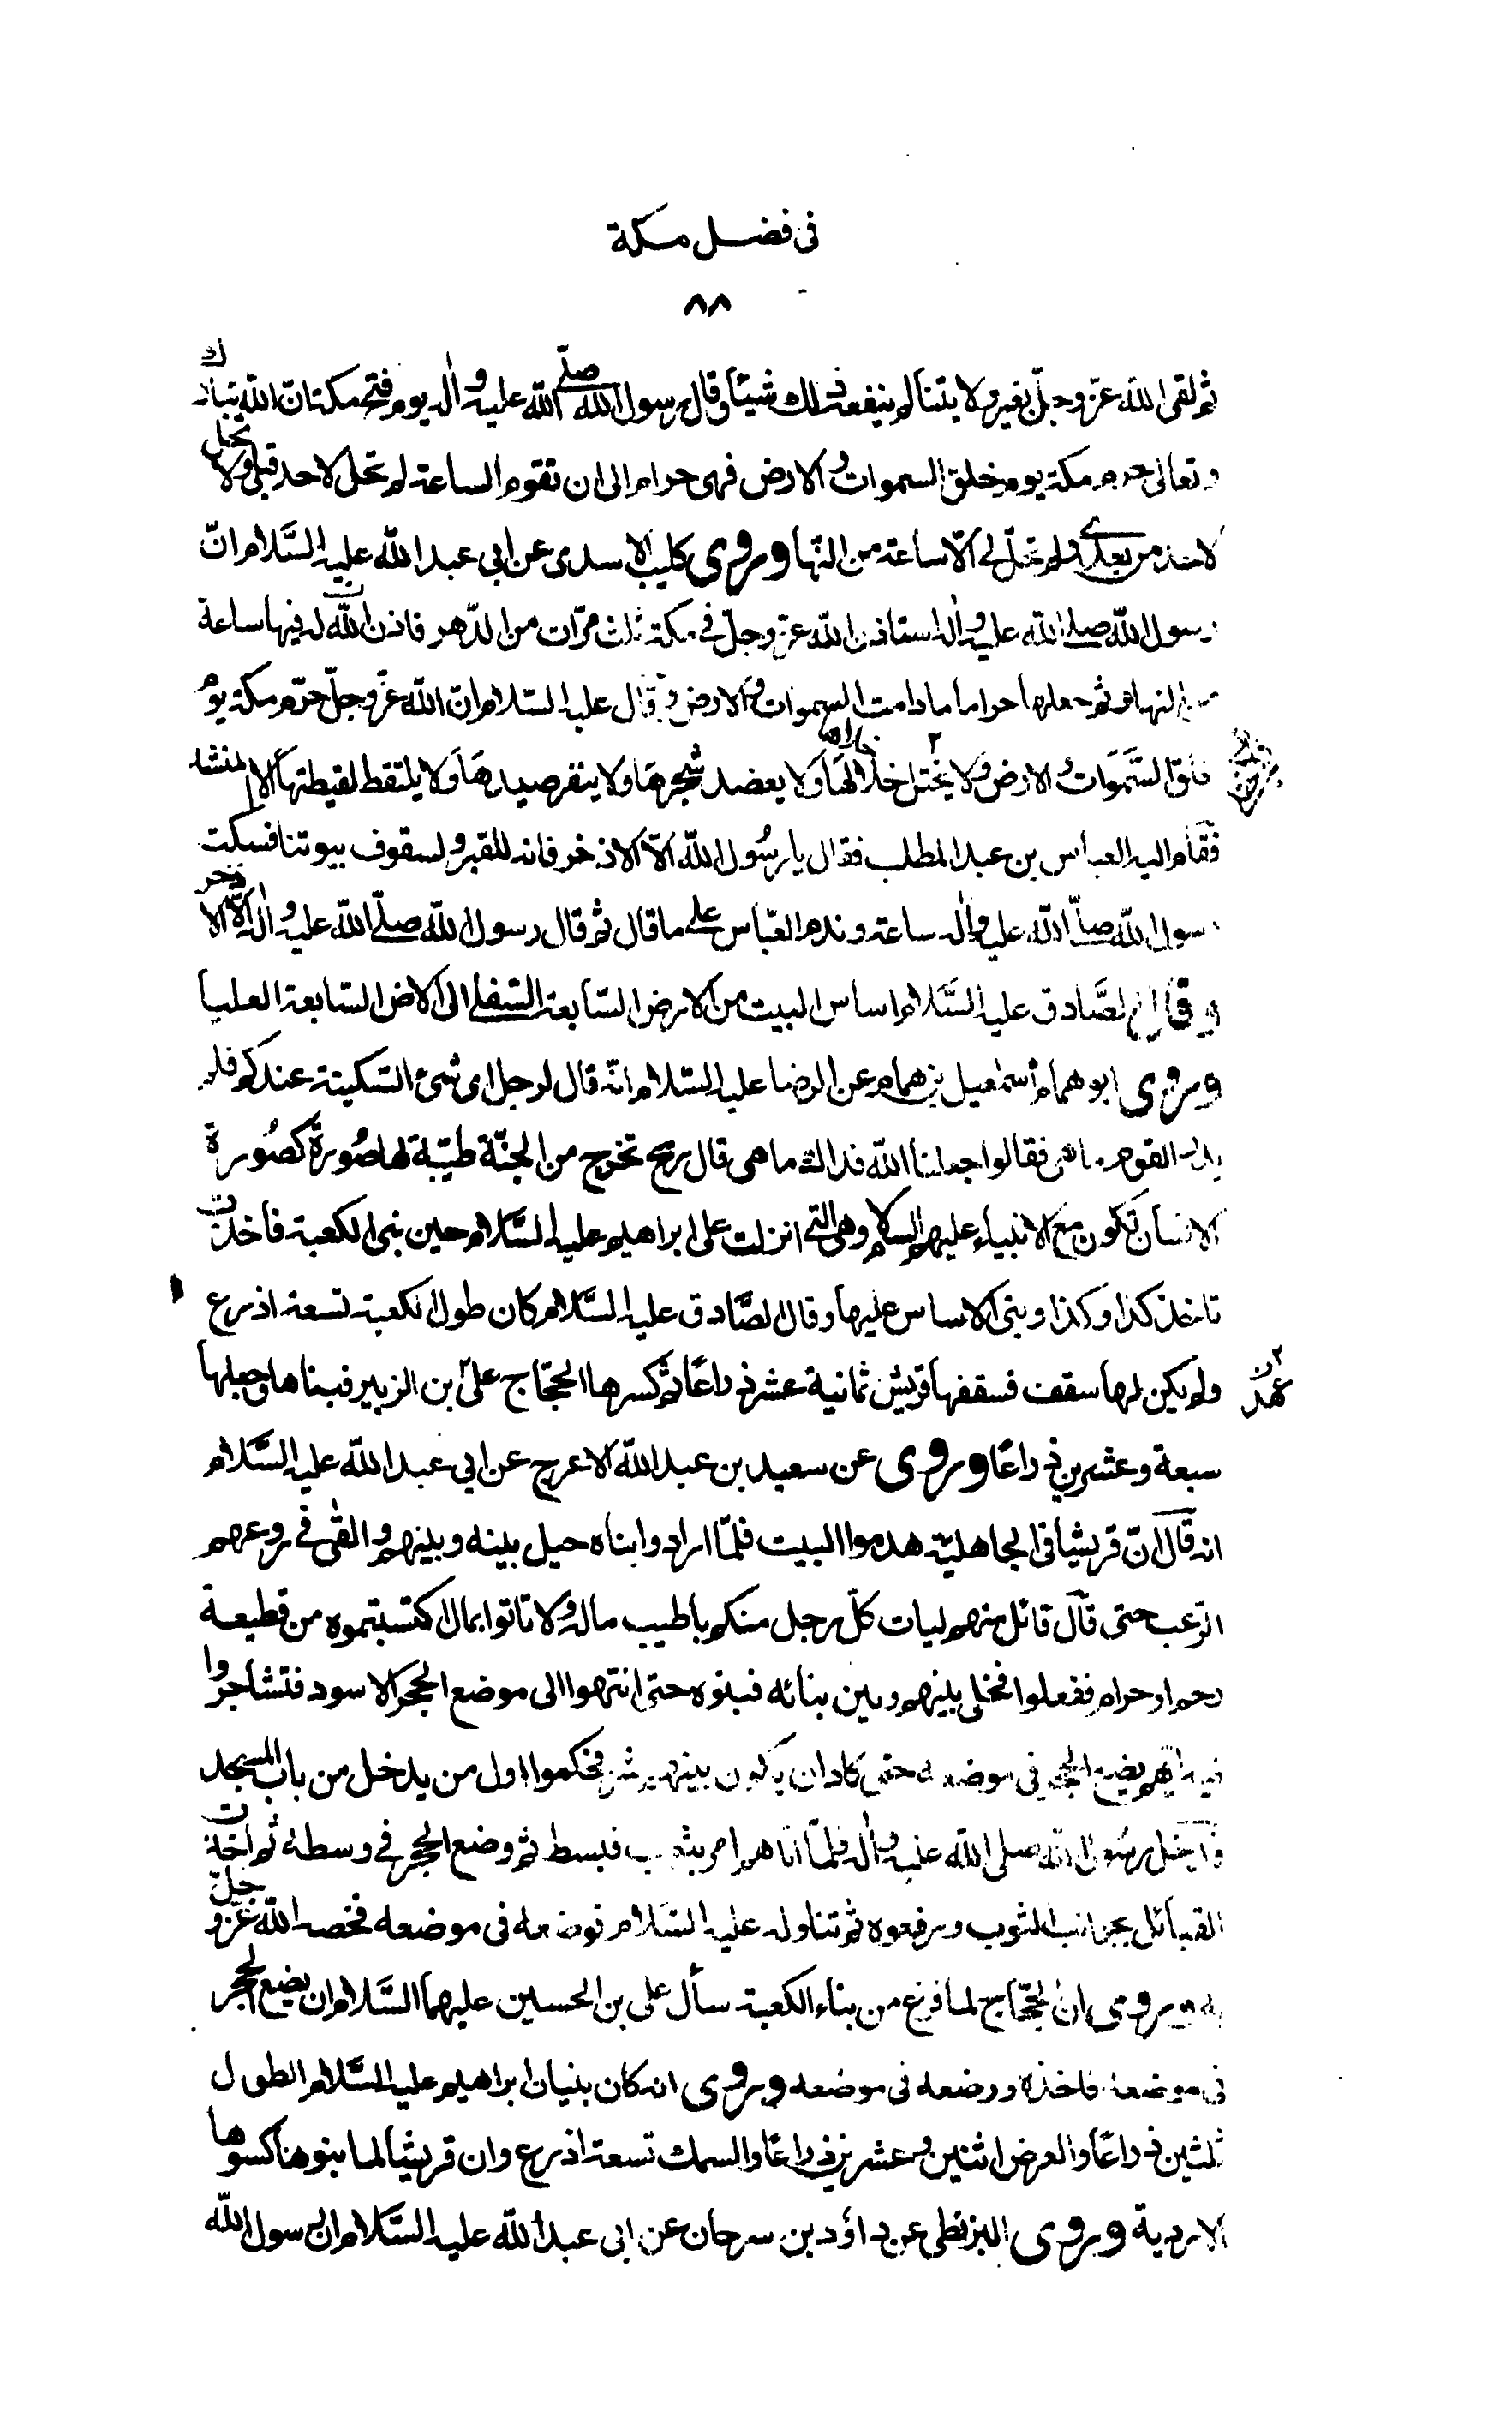 فى فضل مكة
٨٨
ثم لقى الله عزّ وجلّ بغير ولايتنا لم ينفعه ذلك شيئا وقال رسول الله صلّى الله عليه وآله يوم فتح مكة ان الله تبارك
وتعالى حرم مكة يوم خلق السموات والارض فهى حرام الى ان تقوم الساعة لم تحل لاحد قبلى ولا تحل
لاحد من بعدى ولم تحلّ لى الّا ساعة من النّهار وروى كليب الاسدى عن ابى عبد الله عليه السَّلام انّ
رسول الله صلى الله عليه وآله استاذن الله عزّ وجلّ فى مكة ثلث مرّات من الدّهر فاذن الله له فيها ساعة
من النهار ثم جعلها حراما ما دامت السموات والارض وقال عليه السّلام انّ الله عزّ وجلّ حرّم مكة يوم
خلق السَّمَوات والارض ولا يختلى خلالها ولا يعضد شجرها ولا ينفر صيدها ولا يلتقط لقيطتها الا لمنشد
فقام اليه العباس بن عبد المطلب فقال يا رسُول الله الّا الاذخر فانه للقبر ولسقوف بيوتنا فسكت
رسول الله صلّى الله عليه وآله ساعة وندم العبّاس على ما قال ثم قال رسول الله صلّى الله عليه وآله الّا الاذخر
وقال الصَّادق عليه السَّلام اساس البيت من الارض السّابعة السّفلى الى الارض السّابعة العليا
وروى ابو همام اسمعيل بن همام عن الرضا عليه السّلام انّه قال لرجل اى شئ السّكينة عندكم فلم
يدر القوم ما هى فقالوا جعلنا الله فداك ما هى قال ريح تخرج من الجنّة طيّبة لها صُورة كصُورة
الانسان تكون مع الانبياء عليهم السلام وهى التى انزلت على ابراهيم عليه السَّلام حين بنى الكعبة فاخذت
تاخذ كذا وكذا وبنى الاساس عليها وقال الصَّادق عليه السَّلام كان طول الكعبة تسعة اذرع
ولم يكن لها سقف فسقفها قريش ثمانية عشر ذراعًا ثم كسرها الحجّاج على بن الزبير فبناها وجعلها
سبعة وعشرين ذراعًا وروى عن سعيد بن عبد الله الاعرج عن ابى عبد الله عليه السَّلام
انه قال انّ قريشا فى الجاهليّة هدموا البيت فلمّا ارادوا بناه حيل بينه وبينهم والقى فى روعهم
الرّعب حتى قال قائل منهم ليات كلّ رجل منكم باطيب ماله ولا تاتوا بمال اكتسبتموه من قطيعة
رحم او حرام ففعلوا فخلى بينهم وبين بنائه فبنوه حتى انتهوا الى موضع الحجر الاسود فتشاجروا
فيه ايّهم يضع الحجر فى موضعه حتى كاد ان يكون بينهم شر فحكموا اول من يدخل من باب المسجد
فدخل رسُول الله صلى الله عليه وآله فلمّا اتاهم امر بثوب فبسط ثم وضع الحجر فى وسطه ثم اخذت
القبائل بجوانب الثوب ورفعوه ثم تناوله عليه السّلام فوضعه فى موضعه فخصه الله عزّ وجلّ
به وروى ان الحجّاج لما فرغ من بناء الكعبة سأل على بن الحسين عليهما السَّلام ان يضع الحجر
فى موضعه فاخذه ووضعه فى موضعه وروى انه كان بنيان ابراهيم عليه السَّلام الطول
ثلثين ذراعًا والعرض اثنين وعشرين ذراعًا والسمك تسعة اذرع وان قريشًا لما بنوها كسوها
الاردية وروى البزنطى عن داؤد بن سرحان عن ابى عبد الله عليه السَّلام ان رسول الله